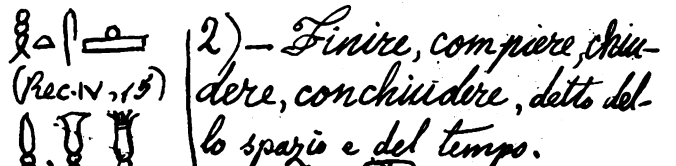 (Rec. IV, 15)
2) — Finire, compiere, chiu-
dere, conchiudere, detto del-
lo spazio e del tempo.